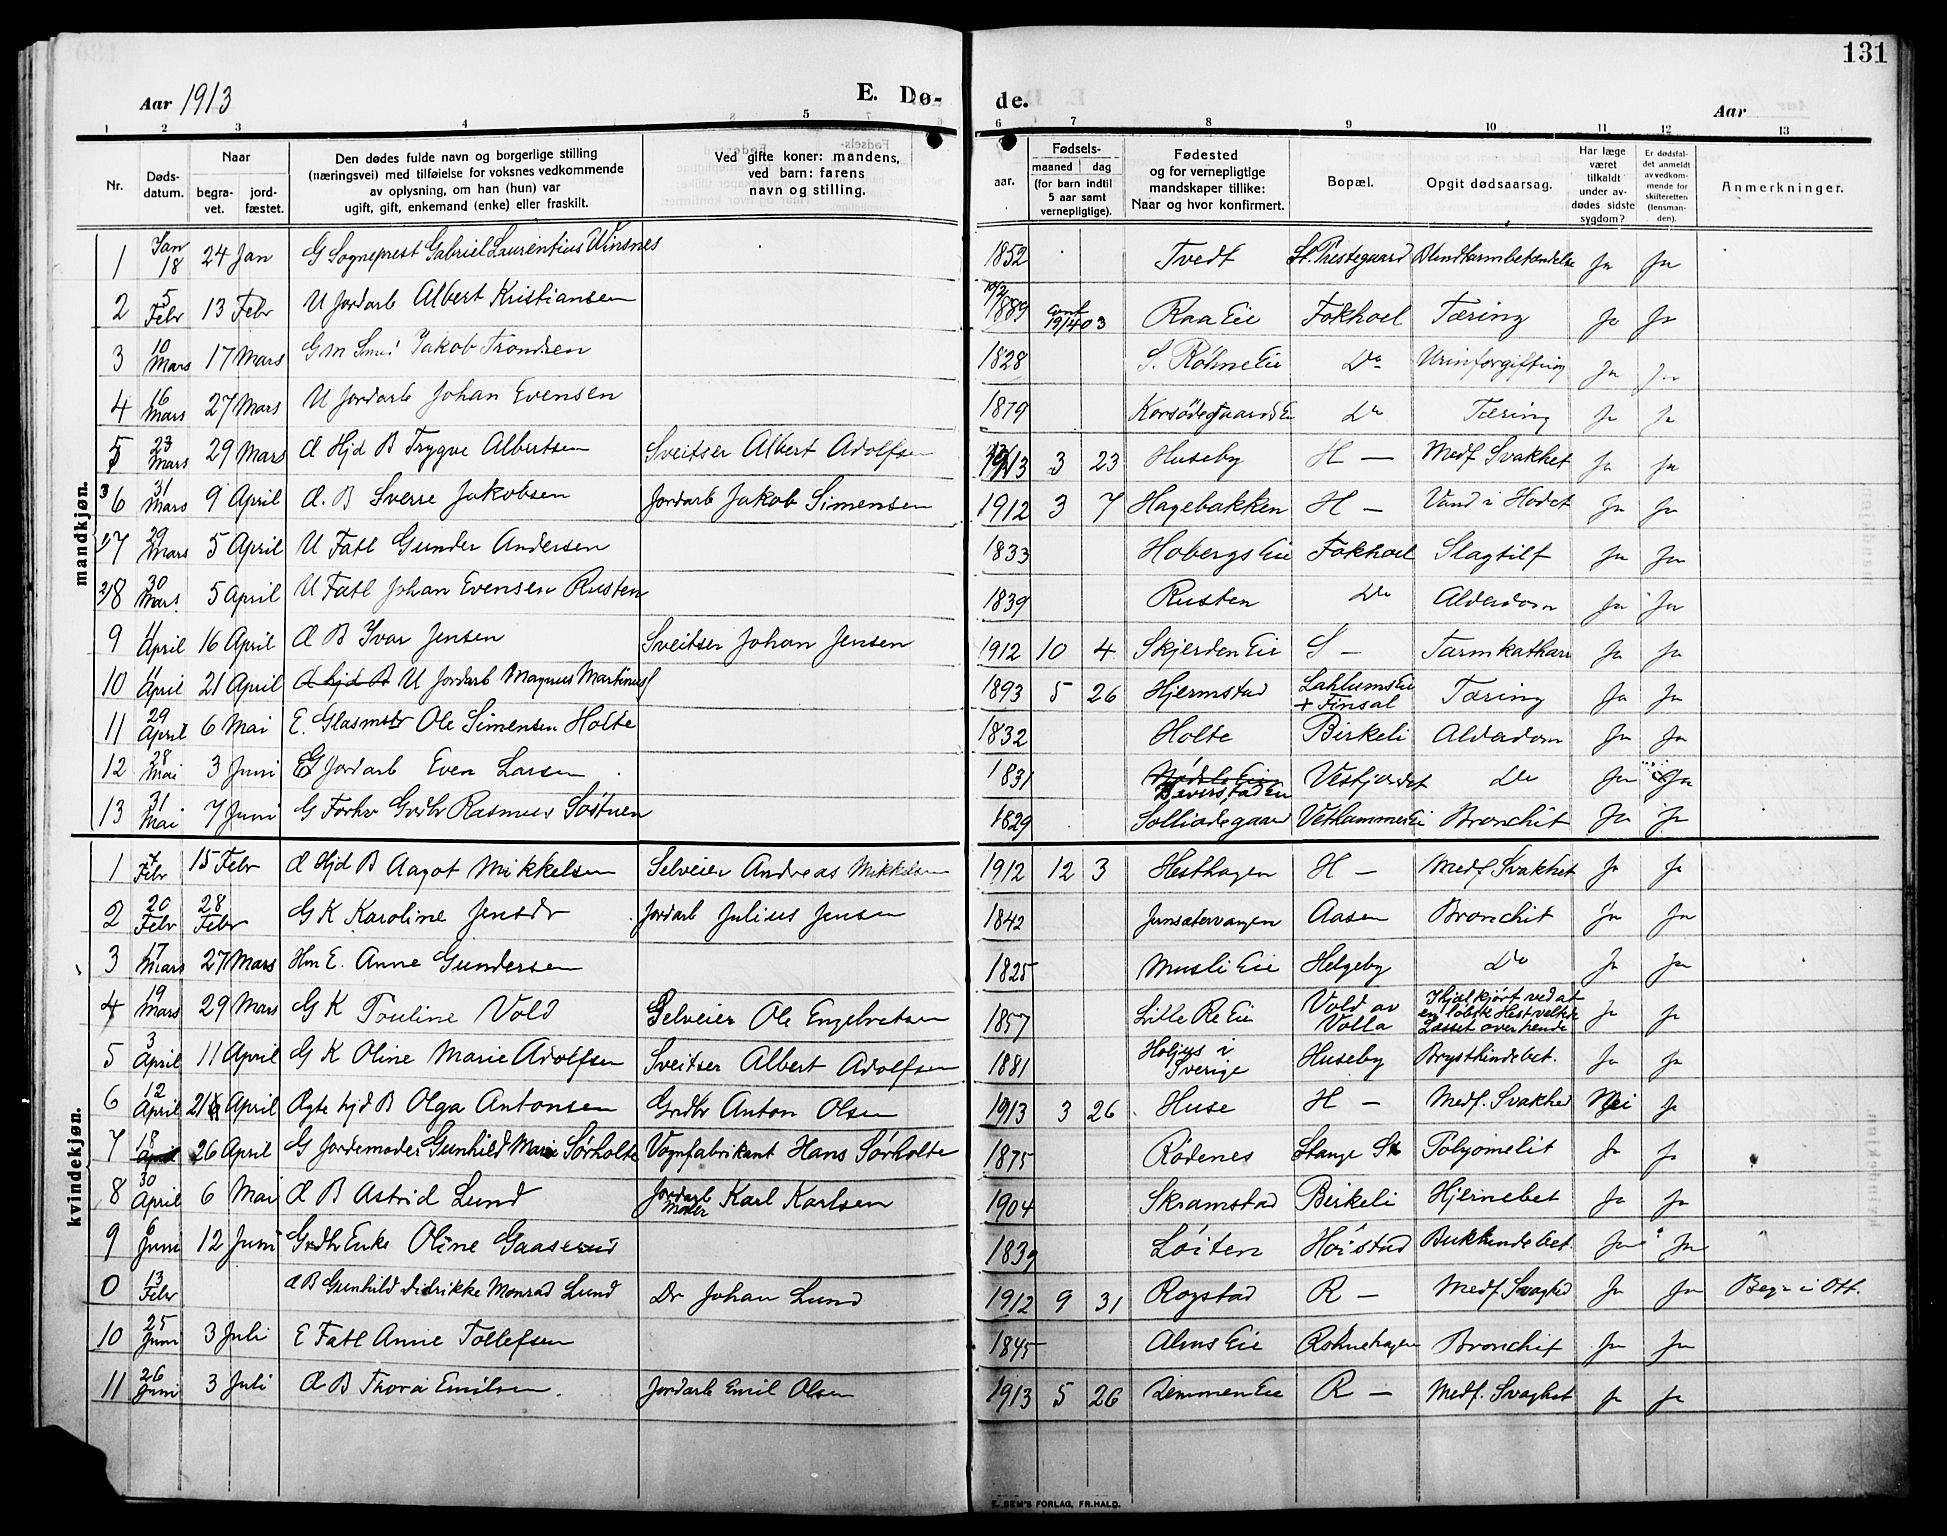 131
Aar 1913 E. Dø- de. Aar
1 2 3 4 5 6 6 7 8 9 10 11 12 13
Nr. Døds-datum. Naar begra-vet. jord-fæstet. Den dødes fulde navn og borgerlige stilling (næringsvei) med tilføielse for voksnes vedkommende av oplysning, om han (hun) var ugift, gift, enkemand (enke) eller fraskilt. Ved gifte koner: mandens, ved barn: farens navn og stilling. aar. Fødsels- maaned dag (for barn indtil 5 aar samt vernepligtige). Fødested og for vernepligtige mandskaper tillike: Naar og hvor konfirmert. Bopæl. Opgit dødsaarsag. Har læge været tilkaldt under av-dødes sidste sygdom? Er dødsfal-det anmeldt av vedkom-mende for skifteretten (lensman-den). Anmerkninger.
mandkjøn.
1 Jan 18 24 Jan G Sogneprest Gabriel Laurentius Winsnes 1852 Tvedt St. Prestegaard Blindtarmbetændelse Ja Ja
2 5 Febr 13 Febr U Jordarb Albert Kristiansen 19/2 1889 conf 19/4 03 Raa Eie Fokhoel Tæring Ja Ja
3 10 Mars 17 Mars G M Smed Jakob Trondsen 1828 S. Røhne Eie Do Urinforgiftning Ja Ja
4 16 Mars 27 Mars U Jordarb Johan Evensen 1879 Korsødegaards Ei Do Tæring Ja Ja
5 23 Mars 29 Mars d Hjd B Trygve Albertsen Sveitser Albert Adolfsen 1913 3 23 Huseby H — Medf Svakhet Ja Ja
6 31 Mars 9 April d. B Sverre Jakobsen Jordarb Jakob Simensen 1912 3 7 Hagebakken H — Vand i Hodet Ja Ja
7 29 Mars 5 April U Fatl Gunder Andersen 1833 Hobergs Eie Fokhoel Slagtilf Ja Ja
8 30 Mars 5 April U Fatl Johan Evensen Rusten 1839 Rusten Do Alderdom Ja Ja
9 April 16 April d B Ivar Jensen Sveitser Johan Jensen 1912 10 4 Skjerden Eie S — Tarmkatharr Ja Ja
10 April 21 April d hjd B U Jordarb Magnus Martinus 1893 5 26 Hjermstad Lahlums Eie + Finsal Tæring Ja Ja
11 29 April 6 Mai E. Glasmstr Ole Simensen Holte 1832 Holte Birkeli Alderdom Ja Ja
12 28 Mai 3 Juni G Jordarb Even Larsen 1831 Eie Vestjordet Do Ja Ja
13 31 Mai 7 Juni G Forhv Grdbr Rasmus Søstuen 1829 Solliødegaard Vethammer Ei Bronchit Ja Ja
kvindekjøn.
1 Febr 15 Febr d Hjd B Aagot Mikkelsen Selveier Andreas Mikkelsen 1912 12 3 Hesthagen H — Medf. Svakhet Ja Ja
2 20 Febr 28 Febr G K Karoline Jensdr Jordarb Julius Jensen 1842 Junsætervangen Aasen Bronchit Ja Ja
3 17 Mars 27 Mars Hm E. Anne Gundersen 1825 Musli Eie Helgeby Do Ja Ja
4 19 Mars 29 Mars G K Pouline Vold Selveier Ole Engebretsen 1857 Lille Re Eie Vold av Volla Ihjælkjørt ved at en løbsk Hest veltede Læsset over hende Ja Ja
5 3 April 11 April G K Oline Marie Adolfsen Sveitser Albert Adolfsen 1881 Holjus i Sverige Huseby Brysthindebet. Ja Ja
6 12 April 21 April Ægte hjd B Olga Antonsen Grdbr Anton Olsen 1913 3 26 Huse H — Medf. Svakhed Nei Ja
7 18 April 26 April G Jordemoder Gunhild Marie Sørholte Vognfabrikant Hans Sørholte 1875 Rødenes Stange St Polyomelit Ja Ja
8 30 April 6 Mai d B Astrid Lund Jordarb Maler Karl Karlsen 1904 Skramstad Birkeli Hjernebet Ja Ja
9 6 Juni 12 Juni Grdbr Enke Oline Gaaserud 1839 Løiten Høistad Bukhindebet. Ja Ja
0 13 Febr d B Gunhild Didrikke Monrad Lund Dr Johan Lund 1912 9 31 Rogstad R — Medf Svaghed Ja Ja Begr i Ott.
10 25 Juni 3 Juli E Fatl Anne Tollefsen 1845 Alms Eie Rohnehagen Bronchit Ja Ja
11 26 Juni 3 Juli d B Thora Emilsen. Jordarb Emil Olsen 1913 5 26 Lemmen Eie R — Medf. Svaghet Ja Ja
E. SEM'S FORLAG, FR.HALD.